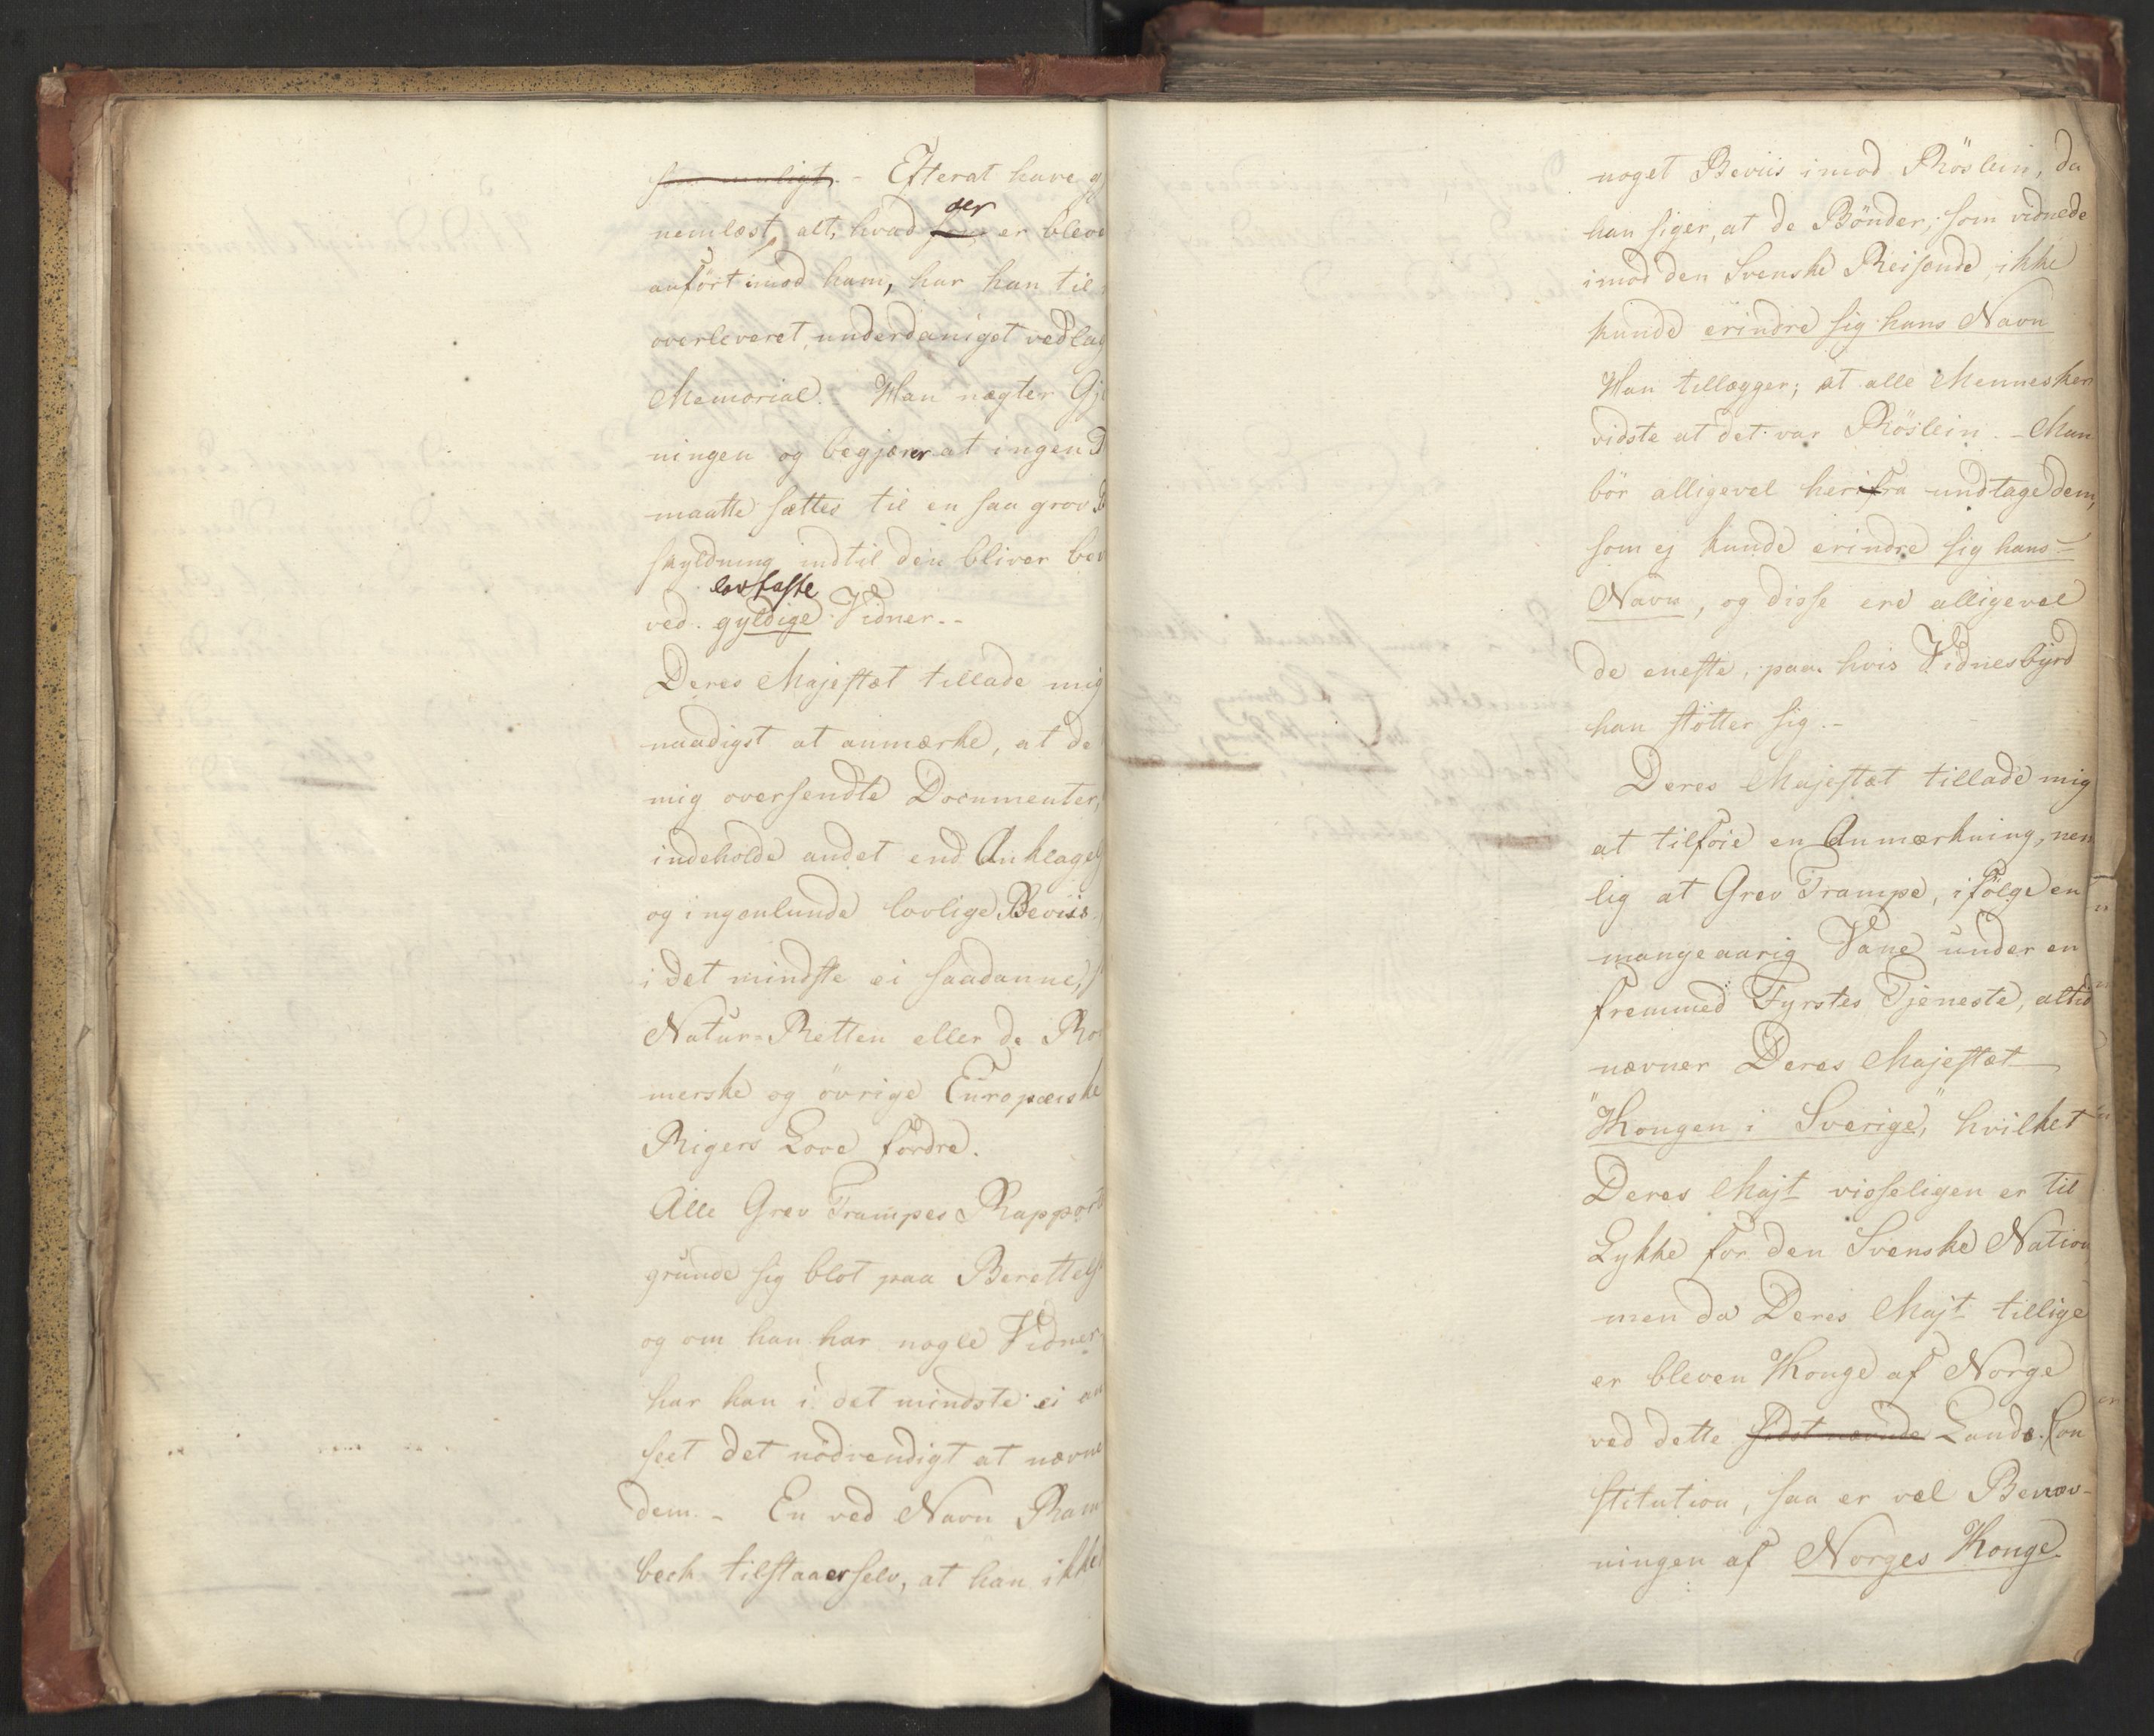 som muligt. - Efterat have g
nemlæst, alt, hvad som der er bleve
anført imod ham, har han til
overleveret, underdanigst vedlag
Memorial. Han nægter Gje
ningen og begjærer at ingen
maatte sættes til en saa grov B
skyldning indtil den bliver bev
lovfaste
ved gyldige Vidner. -
Deres Majestæt tillade mig
naadigst at anmærke, at de
mig oversendte Documenter,
indeholde andet end Anklage
og ingenlunde lovlige Beviis
i det mindste ei saadanne,
Natur-Retten eller de Ro
merske og övrige Europæiske
Rigers Love fordre.
Alle Grev Trampes Rapport
grunde sig blot paa Berettels
og om han har nogle Vidner
har han i det mindste ei an
seet det nödvendigt at nævne
dem. - En ved Navn Ram
beck tilstaaer selv, at han ikke
noget Beviis imod Röslein, da
han siger, at de Bönder, som vidnede
imod den Svenske Reisende, ikke
kunde erindre sig hans Navn
Han tillægger; at alle Mennesker
vidste at det var Röslein. - Man
bör alligevel herifra undtage dem,
som ej kunde erindre sig hans
Navn, og disse ere alligevel
de eneste, paa hvis Vidnesbyrd
han stötter sig. -
Deres Majestæt tillade mig
at tilföie en Anmærkning, nem
lig at Grev Trampe, ifölge en
mangeaarig Vane under en
fremmed Fyrstes Tjeneste, altid
nævner Deres Majestæt
"Kongen i Sverige," hvilket
Deres Majt visseligen er til
Lykke for den Svenske Nation
men da Deres Majt tillige
er bleven Konge af Norge
ved dette sidst nævnte Lands Con
stitution, saa er vel Benæv-
ningen af Norges Konge